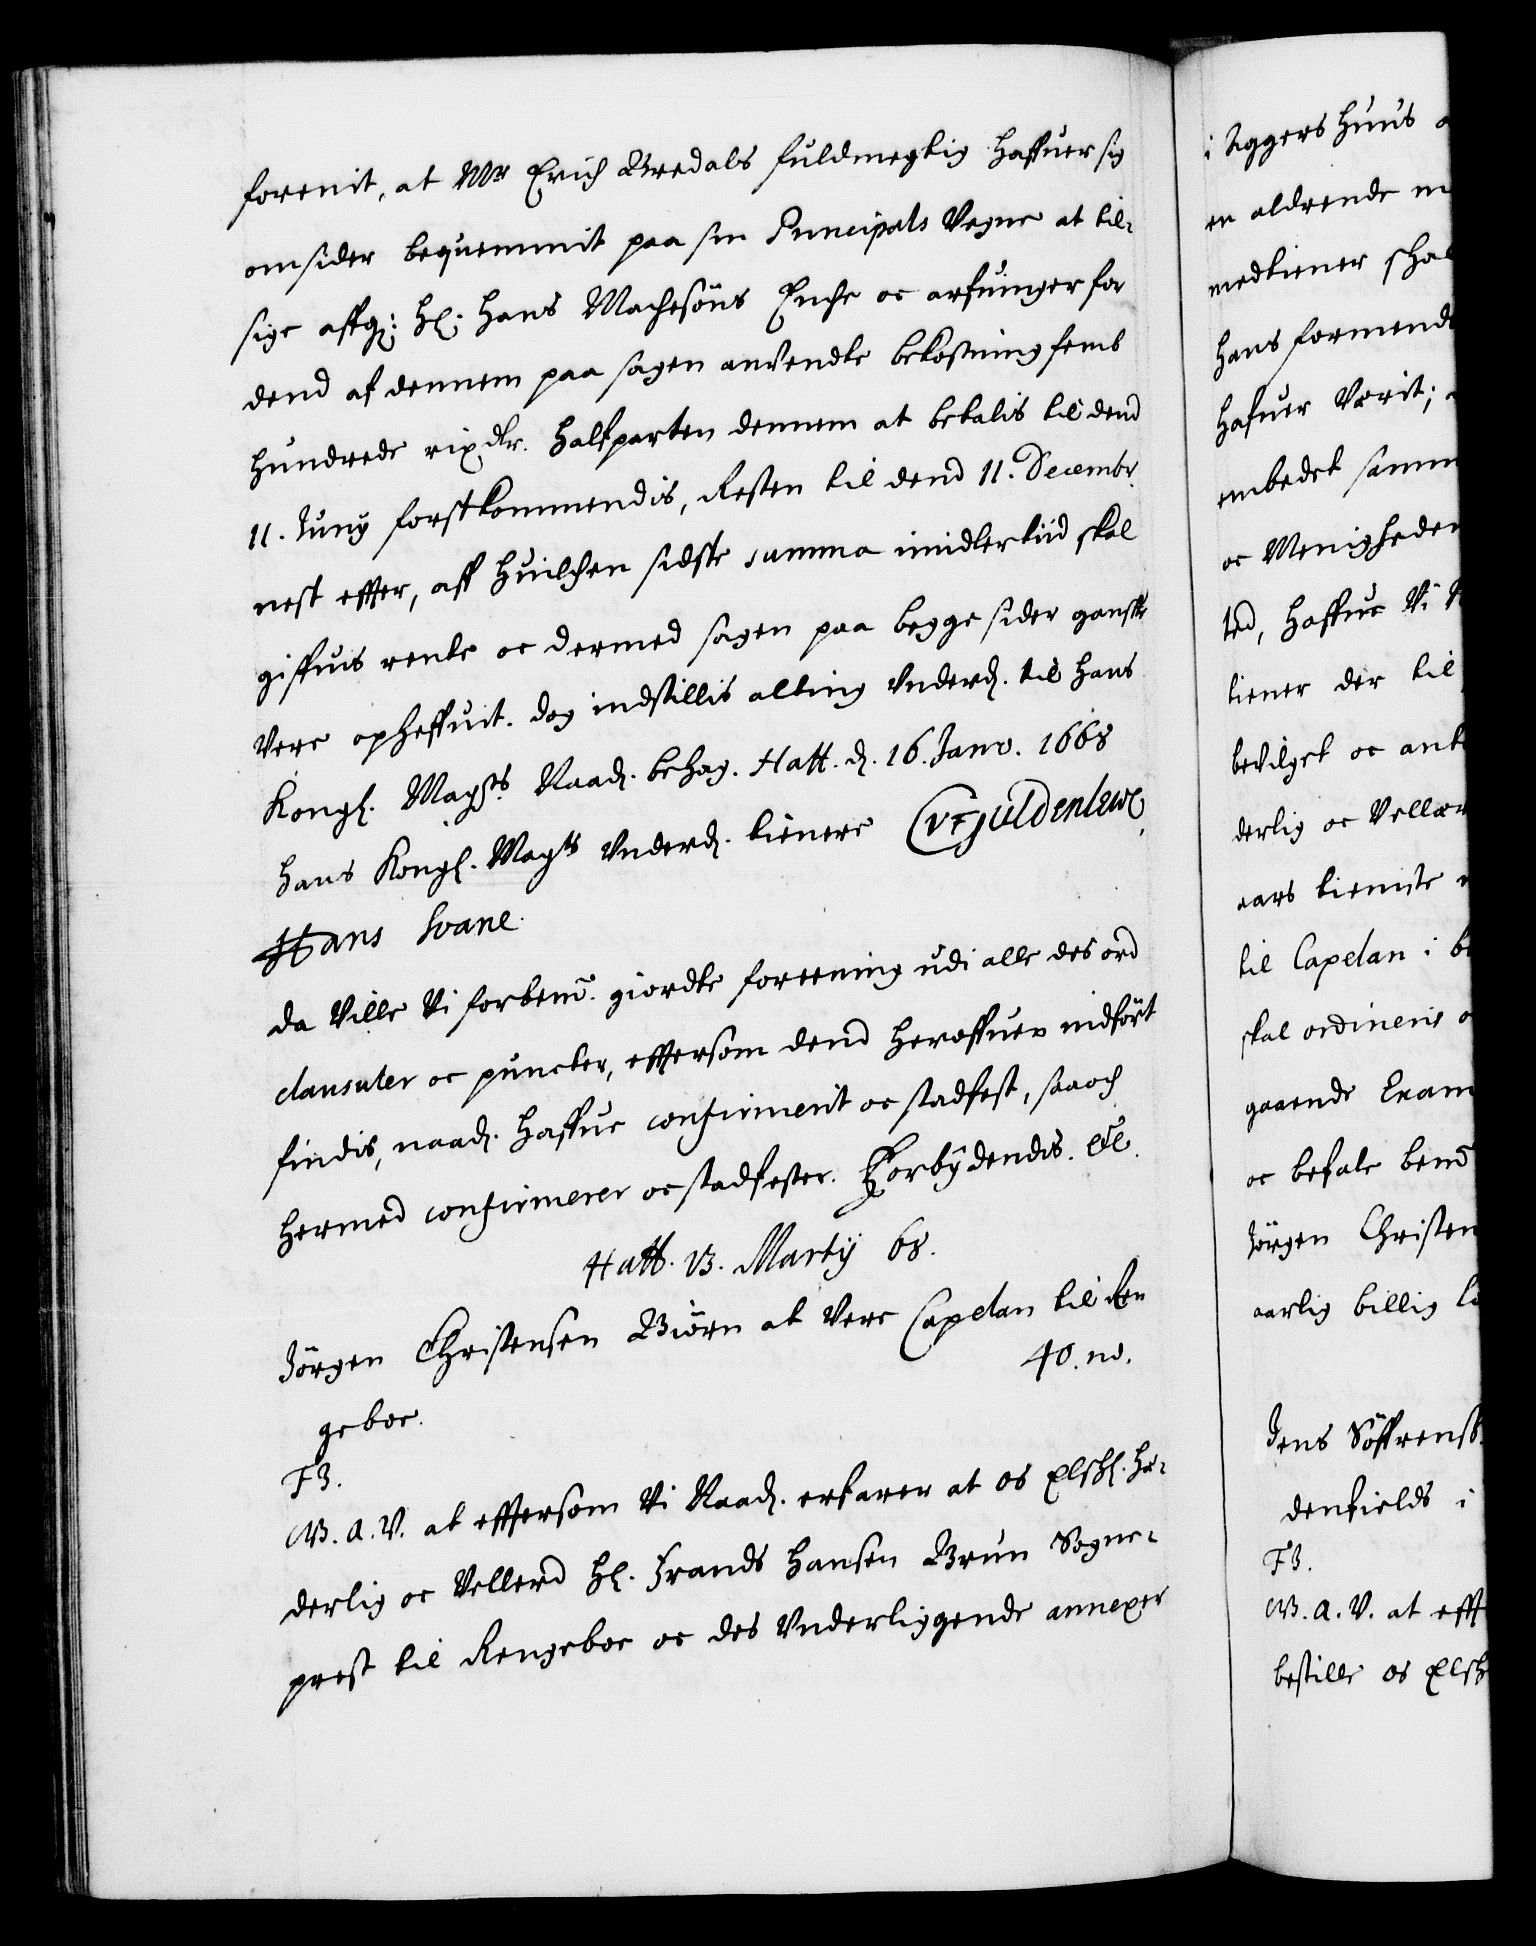 forenit, at Mr Erich Bredals fuldmegtig haffuer sig
omsider bequemmit paa sin Principals Vegne at til-
sige affg: Hl: Hans Machesöns Enche oc arfuinger for
dend af dennem paa sagen anvendte bekostning femb
hundrede rix dlr. halfparten dennem at betalis til dend
11. Junij forstkommendis, Resten til dend 11. Decembr
nest effter, aff huilchen sidste summa imidlertiid skal
giffuis rente oc dermed sagen paa begge sider ganske
Vere opheffuit. dog indstillis alting Vnderd. til hans
Kongl. Mayts. Naad. behag. Haff. d. 16. Janv. 1668
hans Kongl. Mayts Vnderd. tienere CVFGuldenlewe
Hans Svane.
da Ville Vi forbemt. giordte foreening udi alle des ord
clausuler oc puncter, effersom dend heroffuen indfört
findis, naad. haffue confirmerit oc stadfest, saa och
hermed confirmerer oc stadfester. Forbydendis. etc.
Haff. 13. Martij 68.
Jörgen Christensen Biörn at Vere Capelan til Ren
geboe.
40. no.
F3.
G. A. V. at effersom Vi Naad. erfarer at os Elschl. Hæ-
derlig oc Vellerd Hl. Frands Hansen Brun Sogne-
prest til Rengeboe oc des Vnderliggende annexer
i Aggershuus
en aldrende
medtiener
hans formend
hafuer Verit;
embedet
oc Menigheden
ted, haffue Vi
tiener der til
bevilget oc
derlig oc Vellær
aars tieniste
til Capelan i
skal ordineris
gaaende Exam
oc befale bemt
Jörgen Christen
aarlig billig
Jens Söffrens
denfields i
F3.
G. A. V. at eff
bestille os Elsch